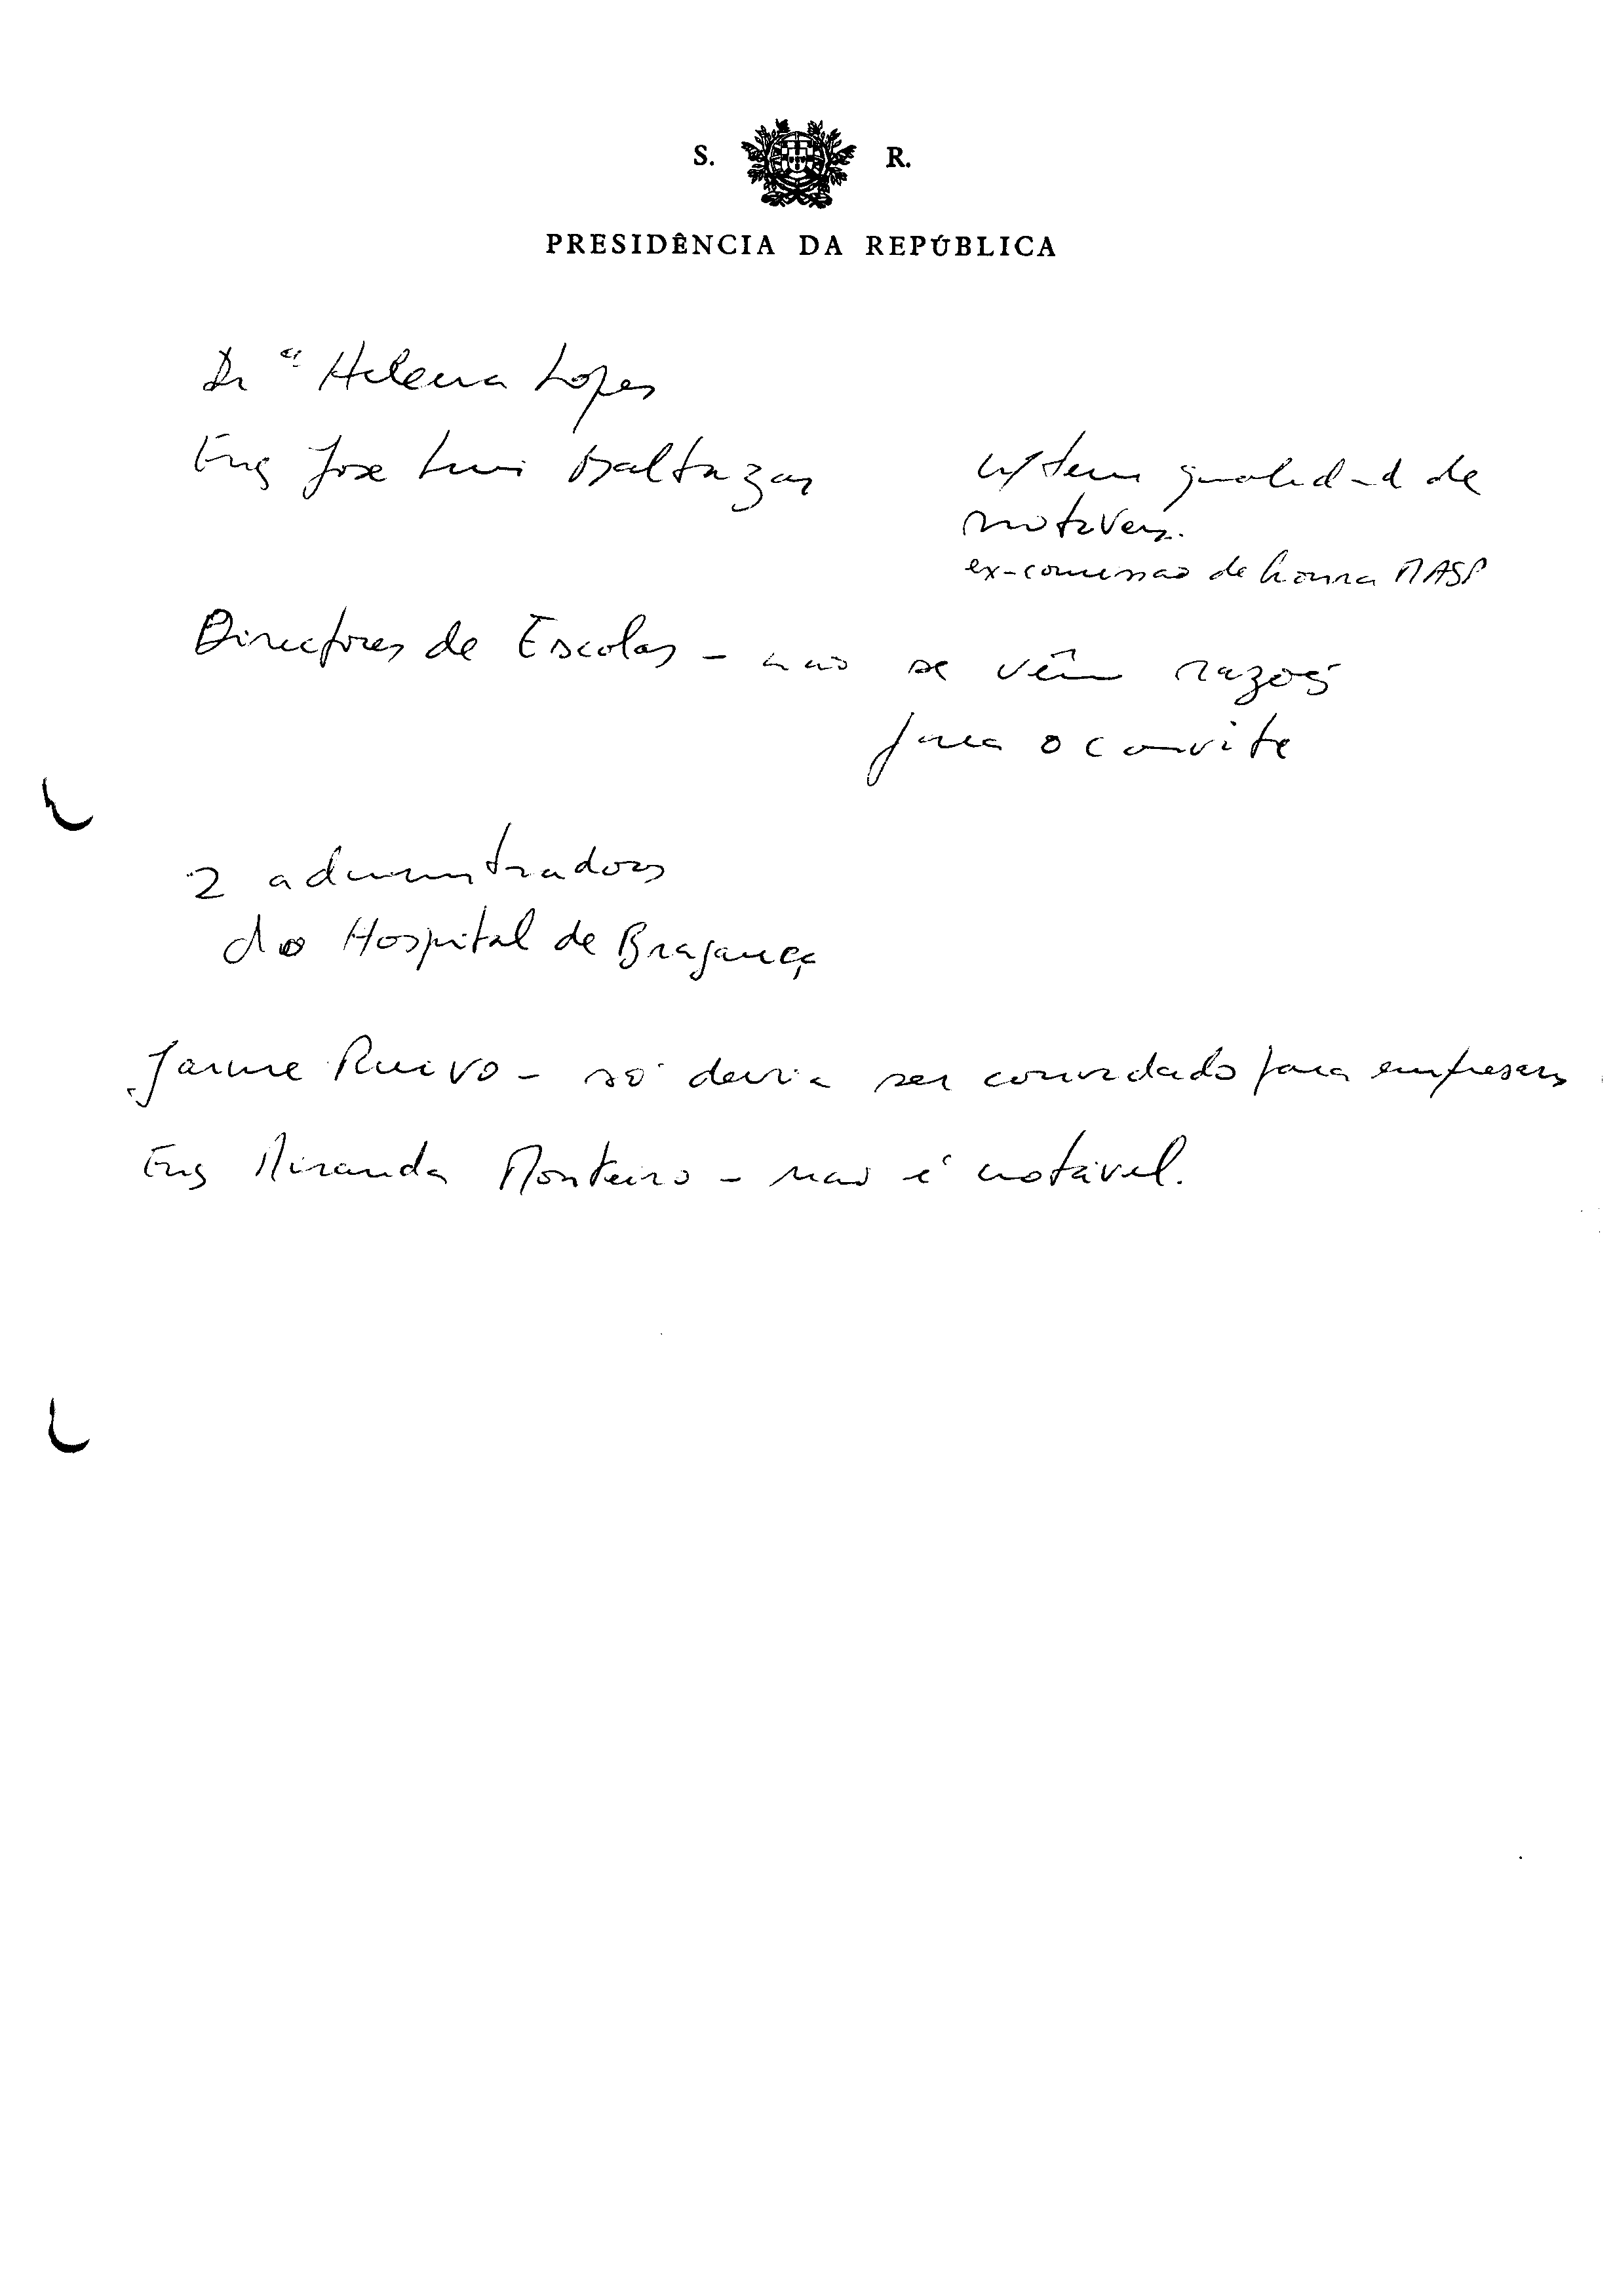 S. R.
PRESIDÊNCIA DA REPÚBLICA
Drª Helena Lopes
Eng José Luis Baltazar
ñ/tem qualidad de
notáveis.
ex-comissao de honra MASP
Directores de Escolas - nao se vêm razoẽs
para o convite
2 administradores
do Hospital de Bragança
Jaime Ruivo - só devia ser convidado para empresas
Eng Miranda Monteiro - nao é notável.